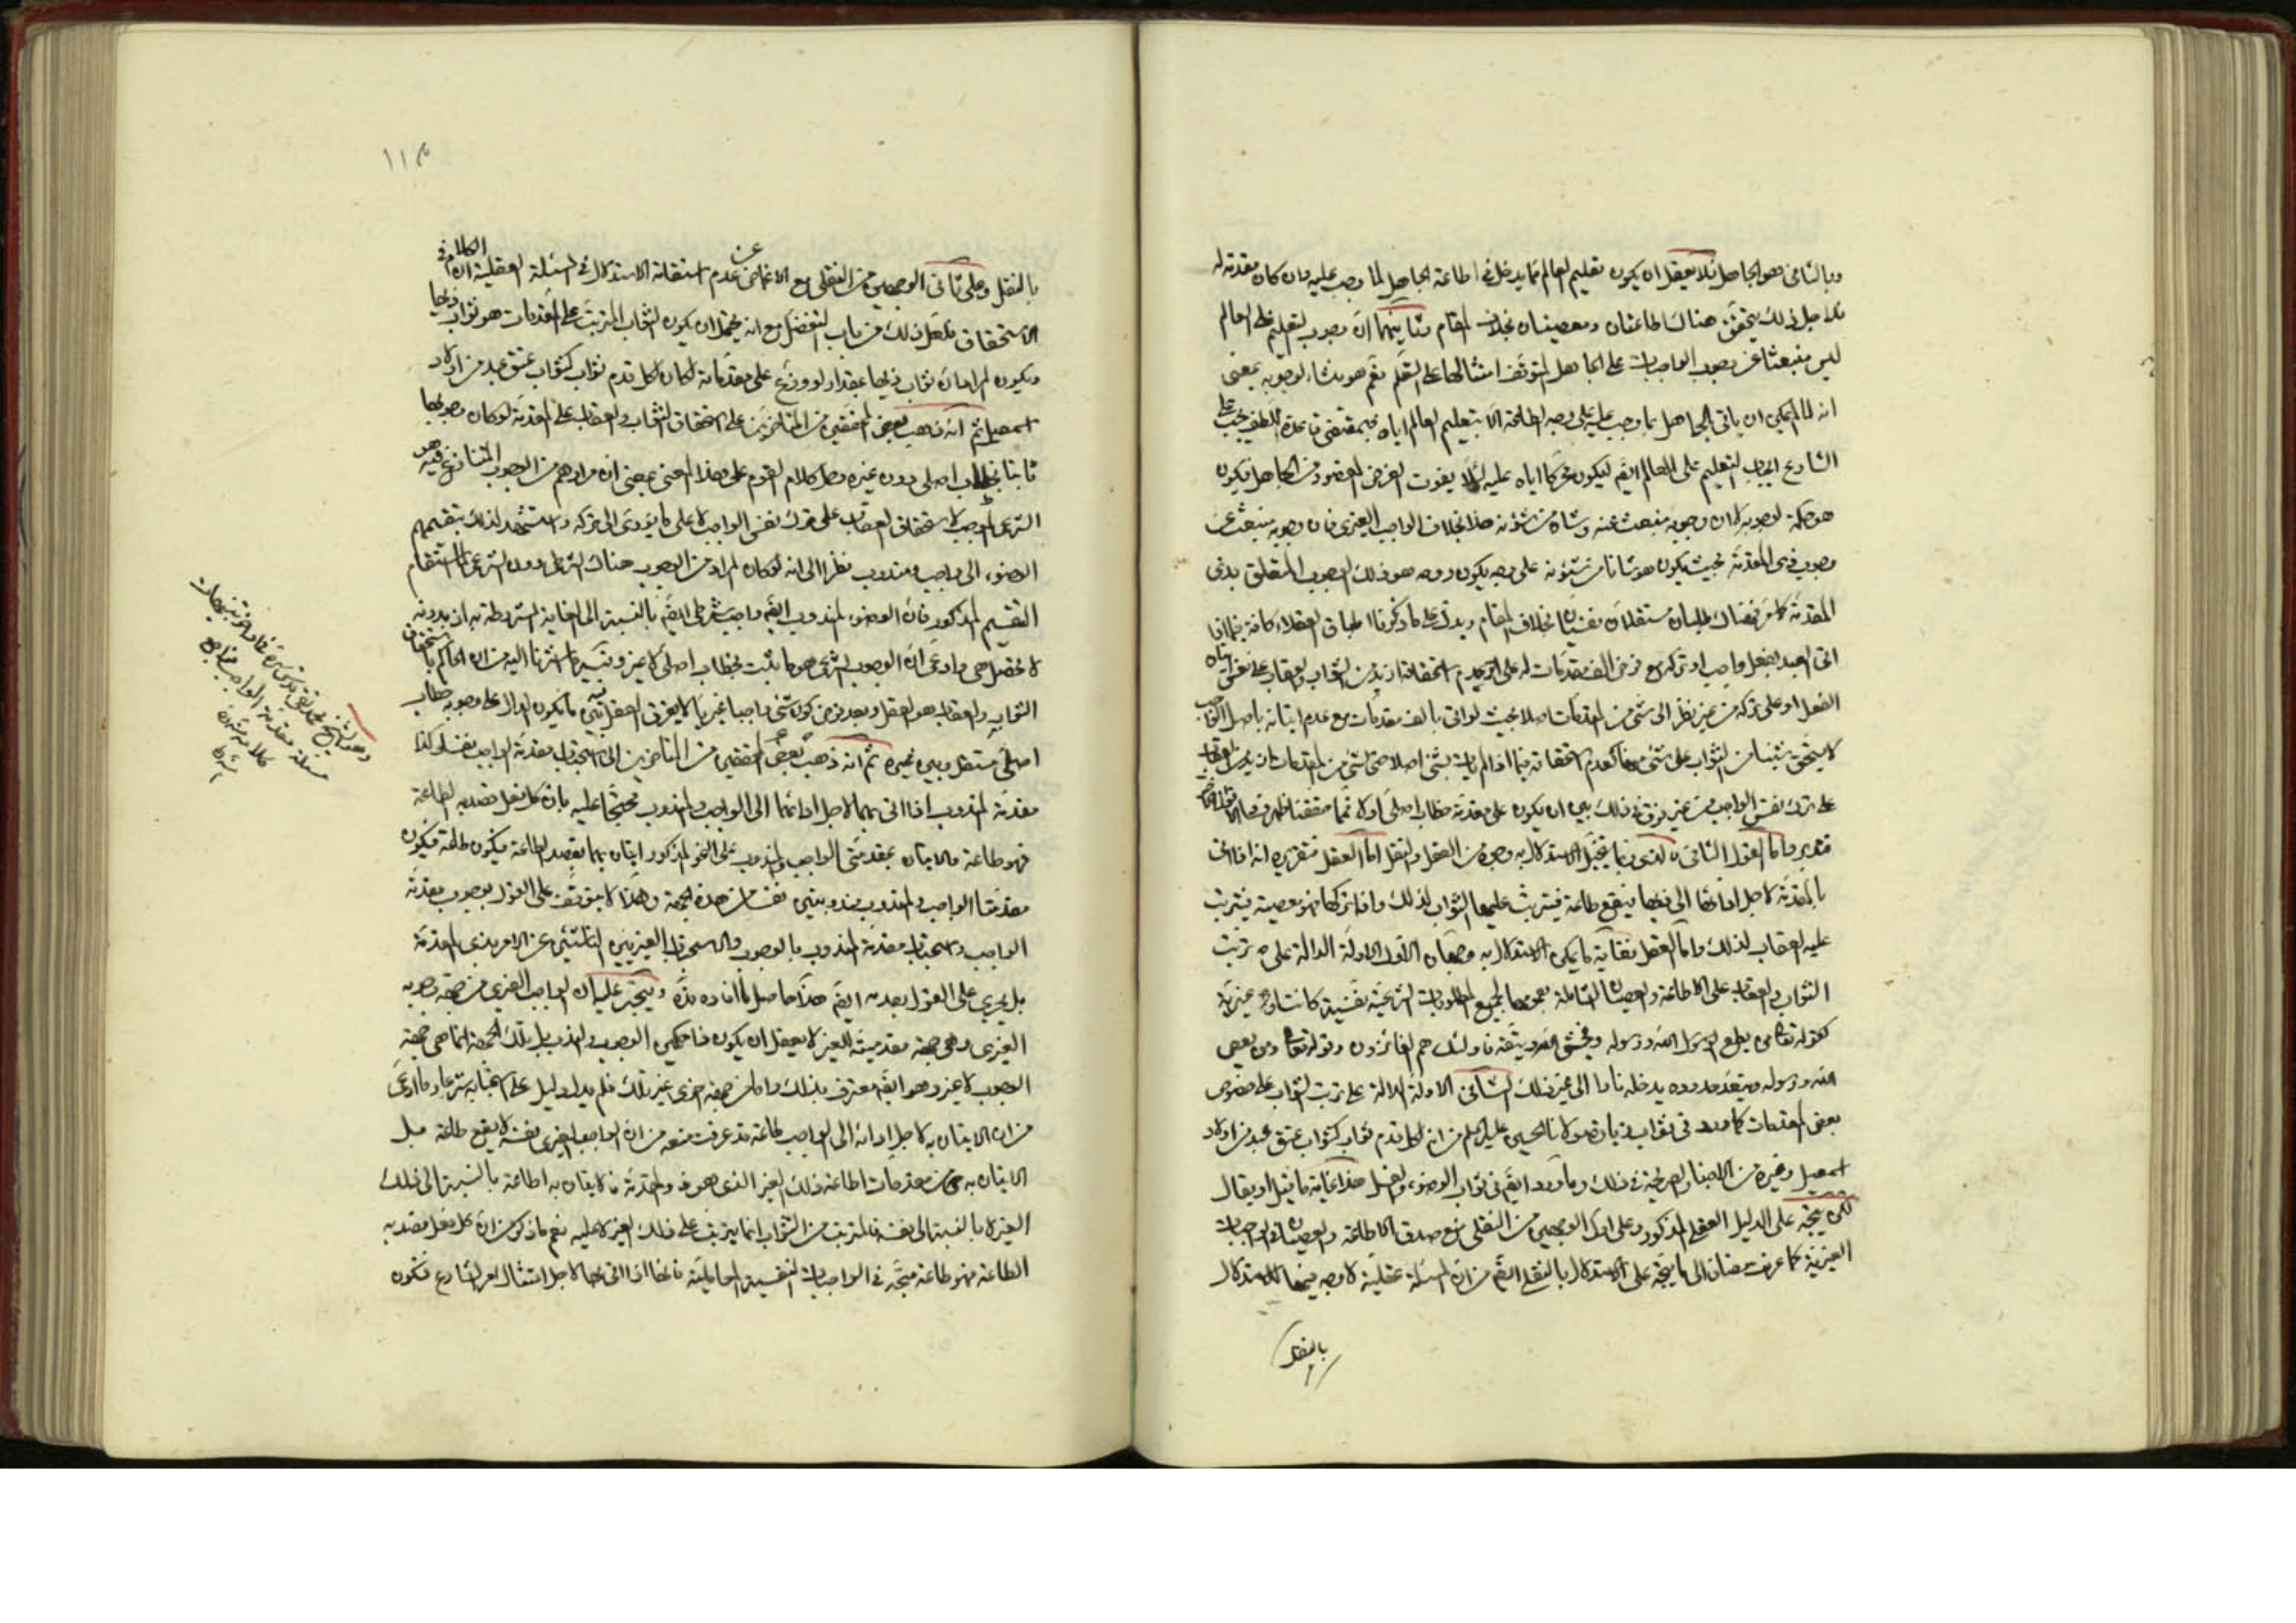 وبالثاني هو الجاهل فلا يعقل ان يكون تعليم العالم مما يدخل في اطاعة الجاهل لما وجب عليه وان كان مقدمة له
فلاجل ذلك يتحقق هناك اطاعتان ومعصيتان بخلاف المقام وثانيهما ان وجوب التعليم على العالم
ليس منبعثا عن وجوب الواجبات على الجاهل المتوقف امتثالها على التعلم نعم هو منشاء لوجوبه بمعنى
انه لما لم يمكن ان ياتى الجاهل بما وجب عليه على وجه الطاعة الا بتعليم العالم اياه فبمقتضى قاعدة اللطف يجب على
الشارع ايجاب التعليم على العالم ايضا ليكون محركا اياه عليه لئلا يفوت الغرض المقصود من الجاهل فيكون
هو حكمة لوجوبه لا ان وجوبه منبعث عنه وشان من شئونه هذا بخلاف الواجب الغيرى فان وجوبه منبعث عن
وجوب ذى المقدمة بحيث يكون هو شانا من شئونه على وجه يكون روحه هو ذلك الوجوب المتعلق بذى
المقدمة كما مر فهناك طلبان مستقلان نفسيان بخلاف المقام ويدل على ما ذكرنا اطباق العقلاء كافة فيما اذا
اتى العبد بفعل واجب او تركه مع فرض الف مقدمات له على عدم استحقاقه ازيد من الثواب والعقاب على نفس اتيان
الفعل او على تركه من غير نظر الى شئ من المقدمات اصلا بحيث لو اتى بالف مقدمات مع عدم اتيانه باصل الواجب
لا يستحق شيئا من الثواب على شئ منها كعدم استحقاقه فيما اذا لم يات بشئ اصلا حتى شئ من المقدمات
على ترك نفس الواجب من غير فرق في ذلك بين ان يكون على مقدمة خطاب اصلى اولا
فتدبر واما القول الثانى الذى ربما يتخيل الاستدلال به وجوه من العقل والنقل اما العقل فتقريره انه اذا اتى
بالمقدمة لاجل ادائها الى ذيها فيقع طاعة فيترتب عليها الثواب لذلك واذا تركها فهو معصية فيترتب
عليه العقاب لذلك واما النقل فغاية ما يمكن الاستدلال به وجهان الاول الادلة الدالة على ترتب
الثواب والعقاب على الاطاعة والعصيان الشاملة بعمومها لجميع المطلوبات الشرعية نفسية كانت او غيرية
كقوله تعالى ومن يطع الله ورسوله ويخشى الله ويتقه فاولئك هم الفائزون وقوله تعالى ومن يعص
الله ورسوله ويتعد حدوده يدخله نارا الى غير ذلك الثانى الادلة الدالة على ترتب الثواب على خصوص
بعض المقدمات كما ورد في ثواب زيارة مولانا الحسين عليه السلم من ان لكل قدم ثوابا كثواب عتق عبد من اولاد
اسمعيل وغيره من الاخبار الصريحة في ذلك وما ورد ايضا في ثواب الوضوء والغسل هذا غاية ما قيل او يقال
لكن يتجه على الدليل العقلى المذكور وعلى اول الوجهين من النقلى منع صدق الاطاعة والعصيان في الواجبات
الغيرية كما عرفت مضافا الى ما يتجه على الاستدلال بالنقل ايضا من ان المسئلة عقلية لا وجه فيها للاستدلال
بالنقل
١١٤
بالنقل وعلى ثانى الوجهين من النقلى مع الاغماض عن عدم استقامة الاستدلال في المسئلة العقلية ان الكلام في
الاستحقاق فلعل ذلك من باب التفضل مع انه يحتمل ان يكون الثواب المترتب على المقدمات هو ثواب ذيها
ويكون المراد ان ثواب ذيها بمقدار لو وزع على مقدماته لكان لكل قدم ثواب كثواب عتق عبد من اولاد
اسمعيل ثم انه ذهب بعض المحققين من المتاخرين على استحقاق الثواب والعقاب على المقدمة لو كان وجوبها
ثابتا بخطاب اصلى دون غيره وحمل كلام القوم على هذا المعنى بمعنى ان مرادهم من الوجوب المتنازع فيه هو
الشرعى الموجب لاستحقاق العقاب على ترك نفس الواجب لا على ما يؤدى الى تركه واستشهد لذلك بتقسيمهم
الوضوء الى واجب ومندوب نظرا الى انه لو كان المراد من الوجوب هناك الشرطى دون الشرعى لما استقام
التقسيم المذكور فان الوضوء المندوب ايضا واجب شرطى ايضا بالنسبة الى الغاية المشروطة به اذ بدونه
لا تحصل هى وادعى ان الوجوب الشرعى هو ما يثبت بخطاب اصلى لا غير ويتجه ما اشرنا اليه من ان الحاكم باستحقاق
الثواب والعقاب هو العقل وبعد فرض كون شئ واجبا غيريا لا يفرق العقل بين ما يكون الدال على وجوبه خطاب
اصلى مستقل وبين غيره ثم انه ذهب بعض المحققين من المتاخرين الى استحباب مقدمة الواجب نفسا وكذا
مقدمة المندوب اذا اتى بهما لاجل ادائهما الى الواجب والمندوب محتجا عليه بان كل فعل قصد به الطاعة
فهو طاعة والاتيان بمقدمتى الواجب والمندوب على النحو المذكور اتيان بهما بقصد الطاعة فيكون طاعة فيكون
مقدمتا الواجب والمندوب مندوبتين نفسا من هذه الجهة وهذا لا يتوقف على القول بوجوب مقدمة
الواجب واستحباب مقدمة المندوب بالوجوب والاستحباب الغيريين الناشئين عن الامر بذى المقدمة
بل يجرى على القول بعدمه ايضا هذا حاصل ما افاده قده ويتجه عليه ان الواجب الغيرى من جهة وجوبه
الغيرى وهى جهة مقدميته للغير لا يعقل ان يكون ذا حكمين الوجوب والندب بل تلك الجهة انما هى جهة
الوجوب لا غير وهو ايضا معترف بذلك واما من جهة اخرى غير تلك فلم يدل دليل على استحبابه شرعا وما ادعى
من ان الاتيان به لاجل ادائه الى الواجب طاعة قد عرفت منعه من ان الواجب الغيرى بنفسه لا يقع طاعة بل
الاتيان به من مقدمات اطاعة ذلك الغير الذى هو ذو المقدمة فالاتيان به اطاعة بالنسبة الى ذلك
الغير لا بالنسبة الى نفسه فالمترتب من الثواب انما يترتب على ذلك الغير لا عليه نعم ما ذكر من ان كل فعل قصد به
الطاعة فهو طاعة متجه في الواجبات النفسية فانها اذا اتى بها لاجل امتثال امر الشارع فتكون
وهو الشيخ محمد تقى قدس سره
مسئلة مقدمة الواجب